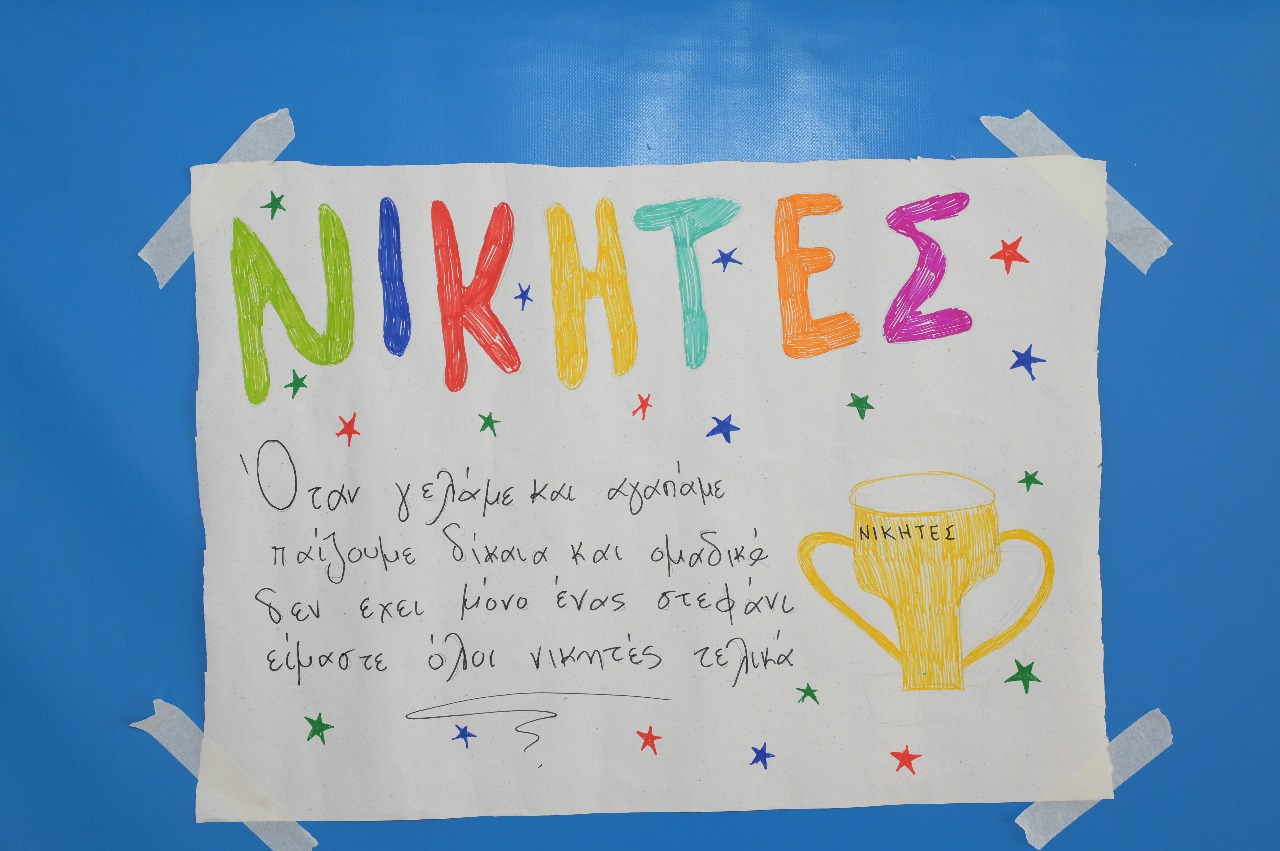 ΝΙΚΗΤΕΣ
Όταν γελάμε και αγαπάμε
παίζουμε δίκαια και ομαδικά
δεν εχει μόνο ένας στεφάνι
είμαστε όλοι νικητές τελικά
ΝΙΚΗΤΕΣ